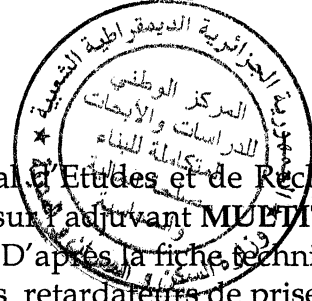 الجمهورية الجزائرية الديمقراطية الشعبية
المركز الوطني
للدراسات والأبحاث
المتكاملة للبناء
al d'Etudes et de Rec
sur l'adjuvant MULTI
D'après la fiche techni
s, retardateurs de prise